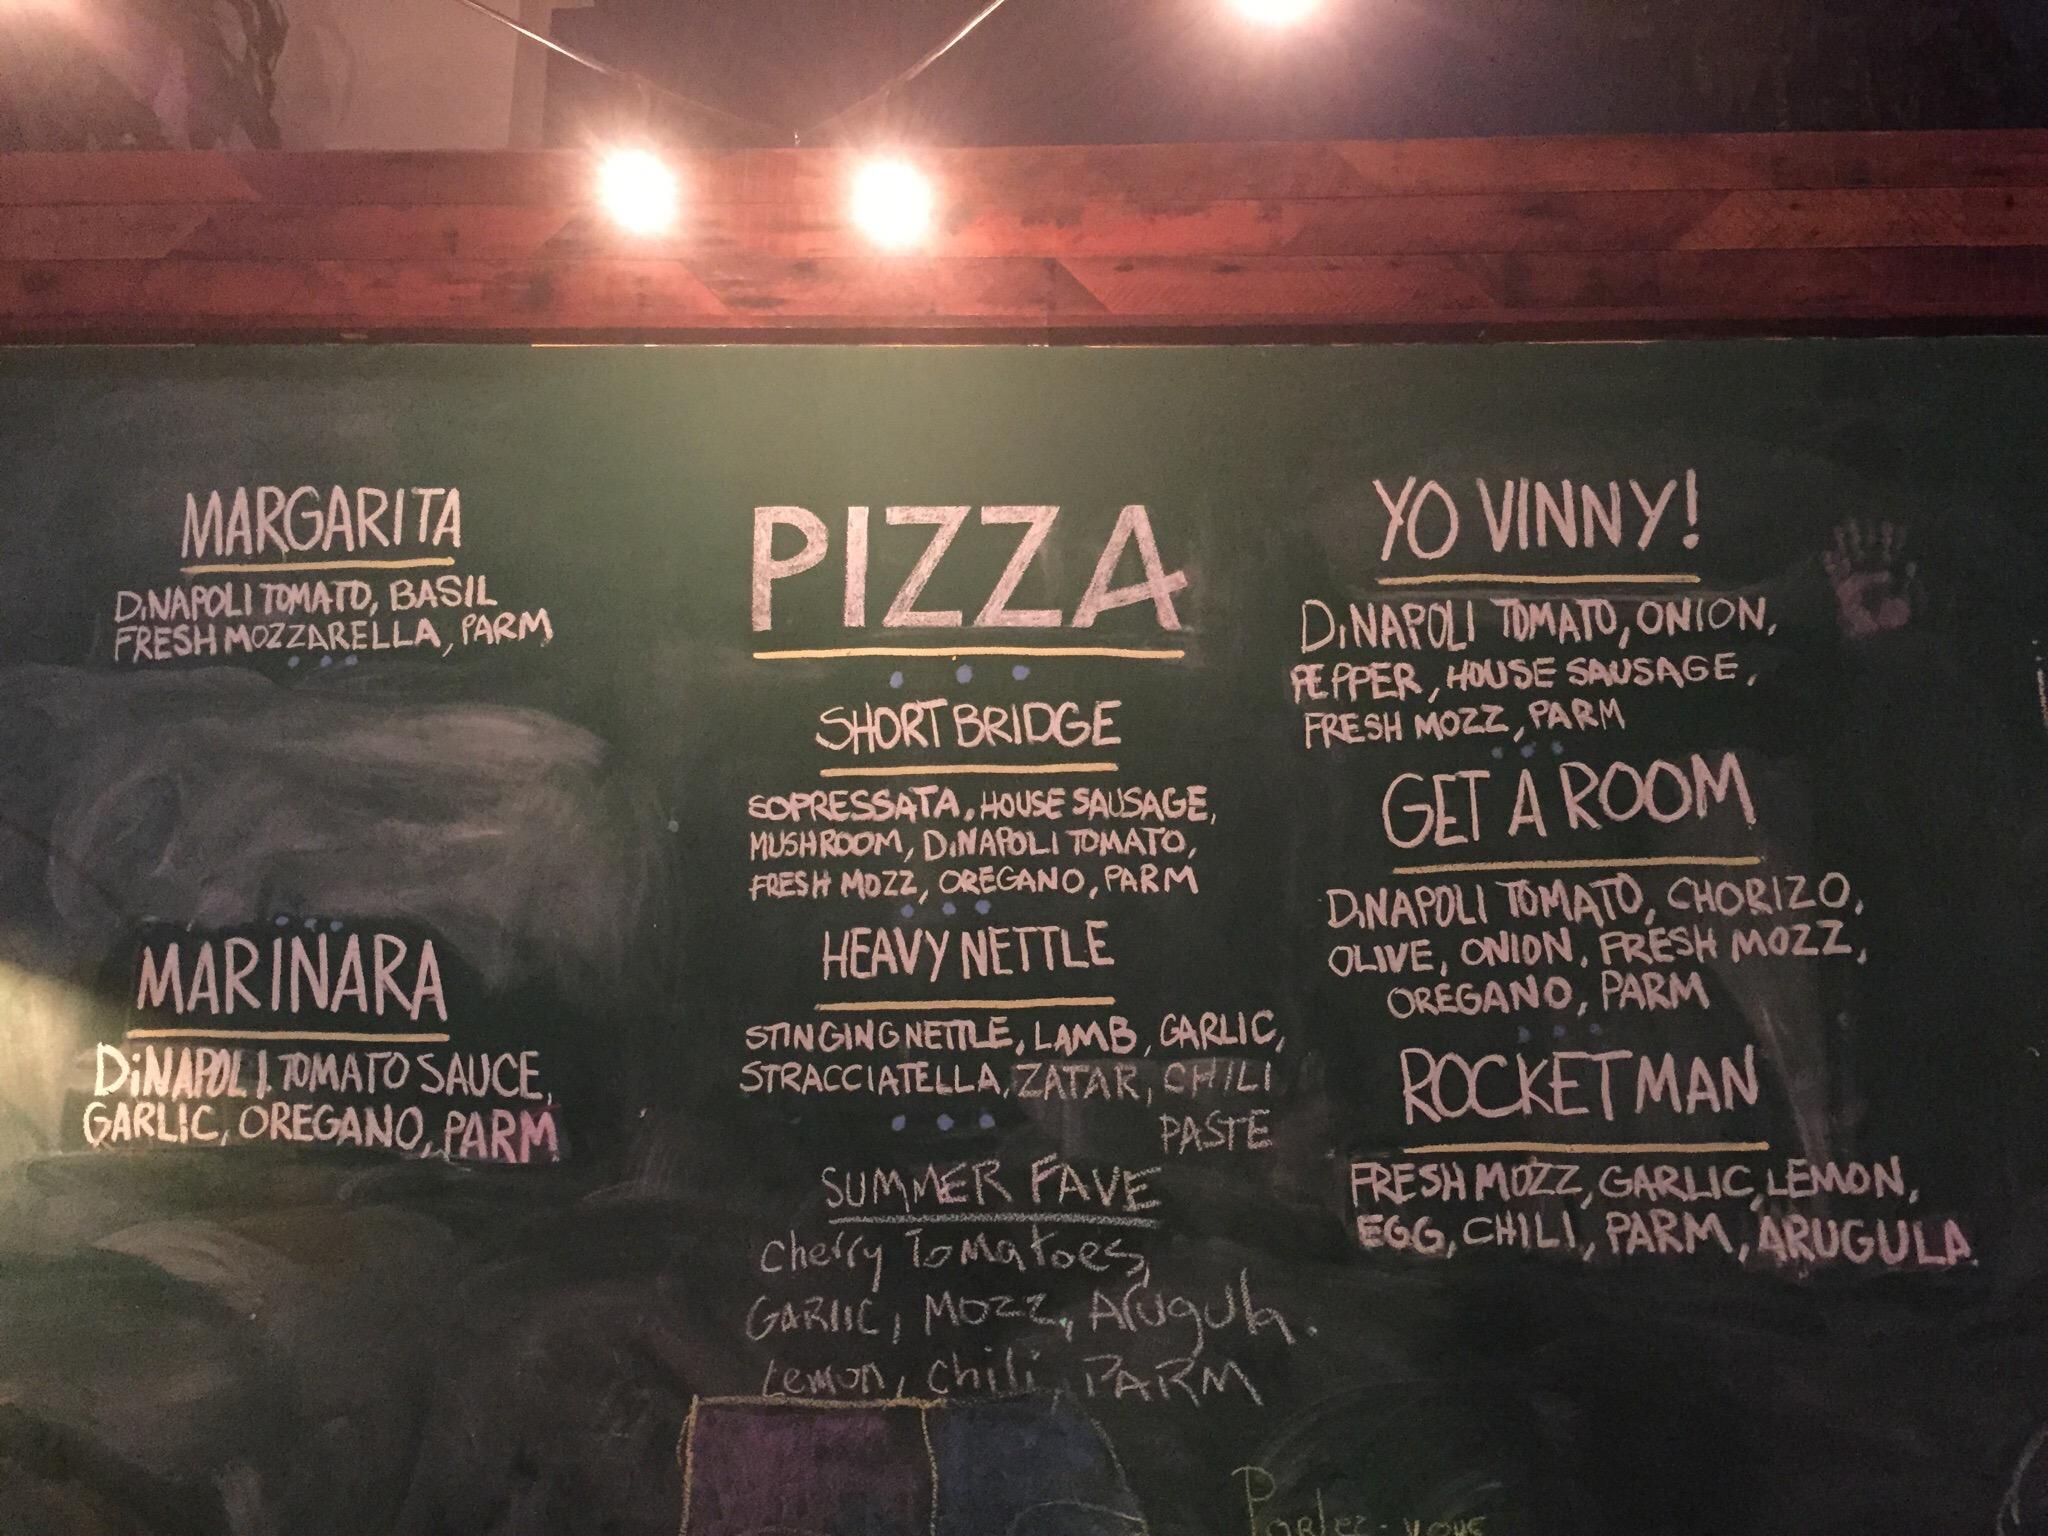 MARGARITA
DiNAPOLI TOMATO, BASIL
FRESH MOZZARELLA, PARM
MARINARA
DiNAPOLI TOMATO SAUCE,
GARLIC, OREGANO, PARM
PIZZA
SHORT BRIDGE
SOPRESSATA, HOUSE SAUSAGE,
MUSHROOM, DiNAPOLI TOMATO,
FRESH MOZZ, OREGANO, PARM
HEAVY NETTLE
STINGING NETTLE, LAMB, GARLIC,
STRACCIATELLA, ZATAR, CHILI
PASTE
SUMMER FAVE
Cherry Tomatoes,
GARlIC, MOZZ, Arugula.
Lemon, Chili, PARM
YO VINNY!
DiNAPOLI TOMATO, ONION,
PEPPER, HOUSE SAUSAGE,
FRESH MOZZ, PARM
GET A ROOM
DiNAPOLI TOMATO, CHORIZO,
OLIVE, ONION, FRESH MOZZ,
OREGANO, PARM
ROCKET MAN
FRESH MOZZ, GARLIC, LEMON,
EGG, CHILI, PARM, ARUGULA
Parlez-vous